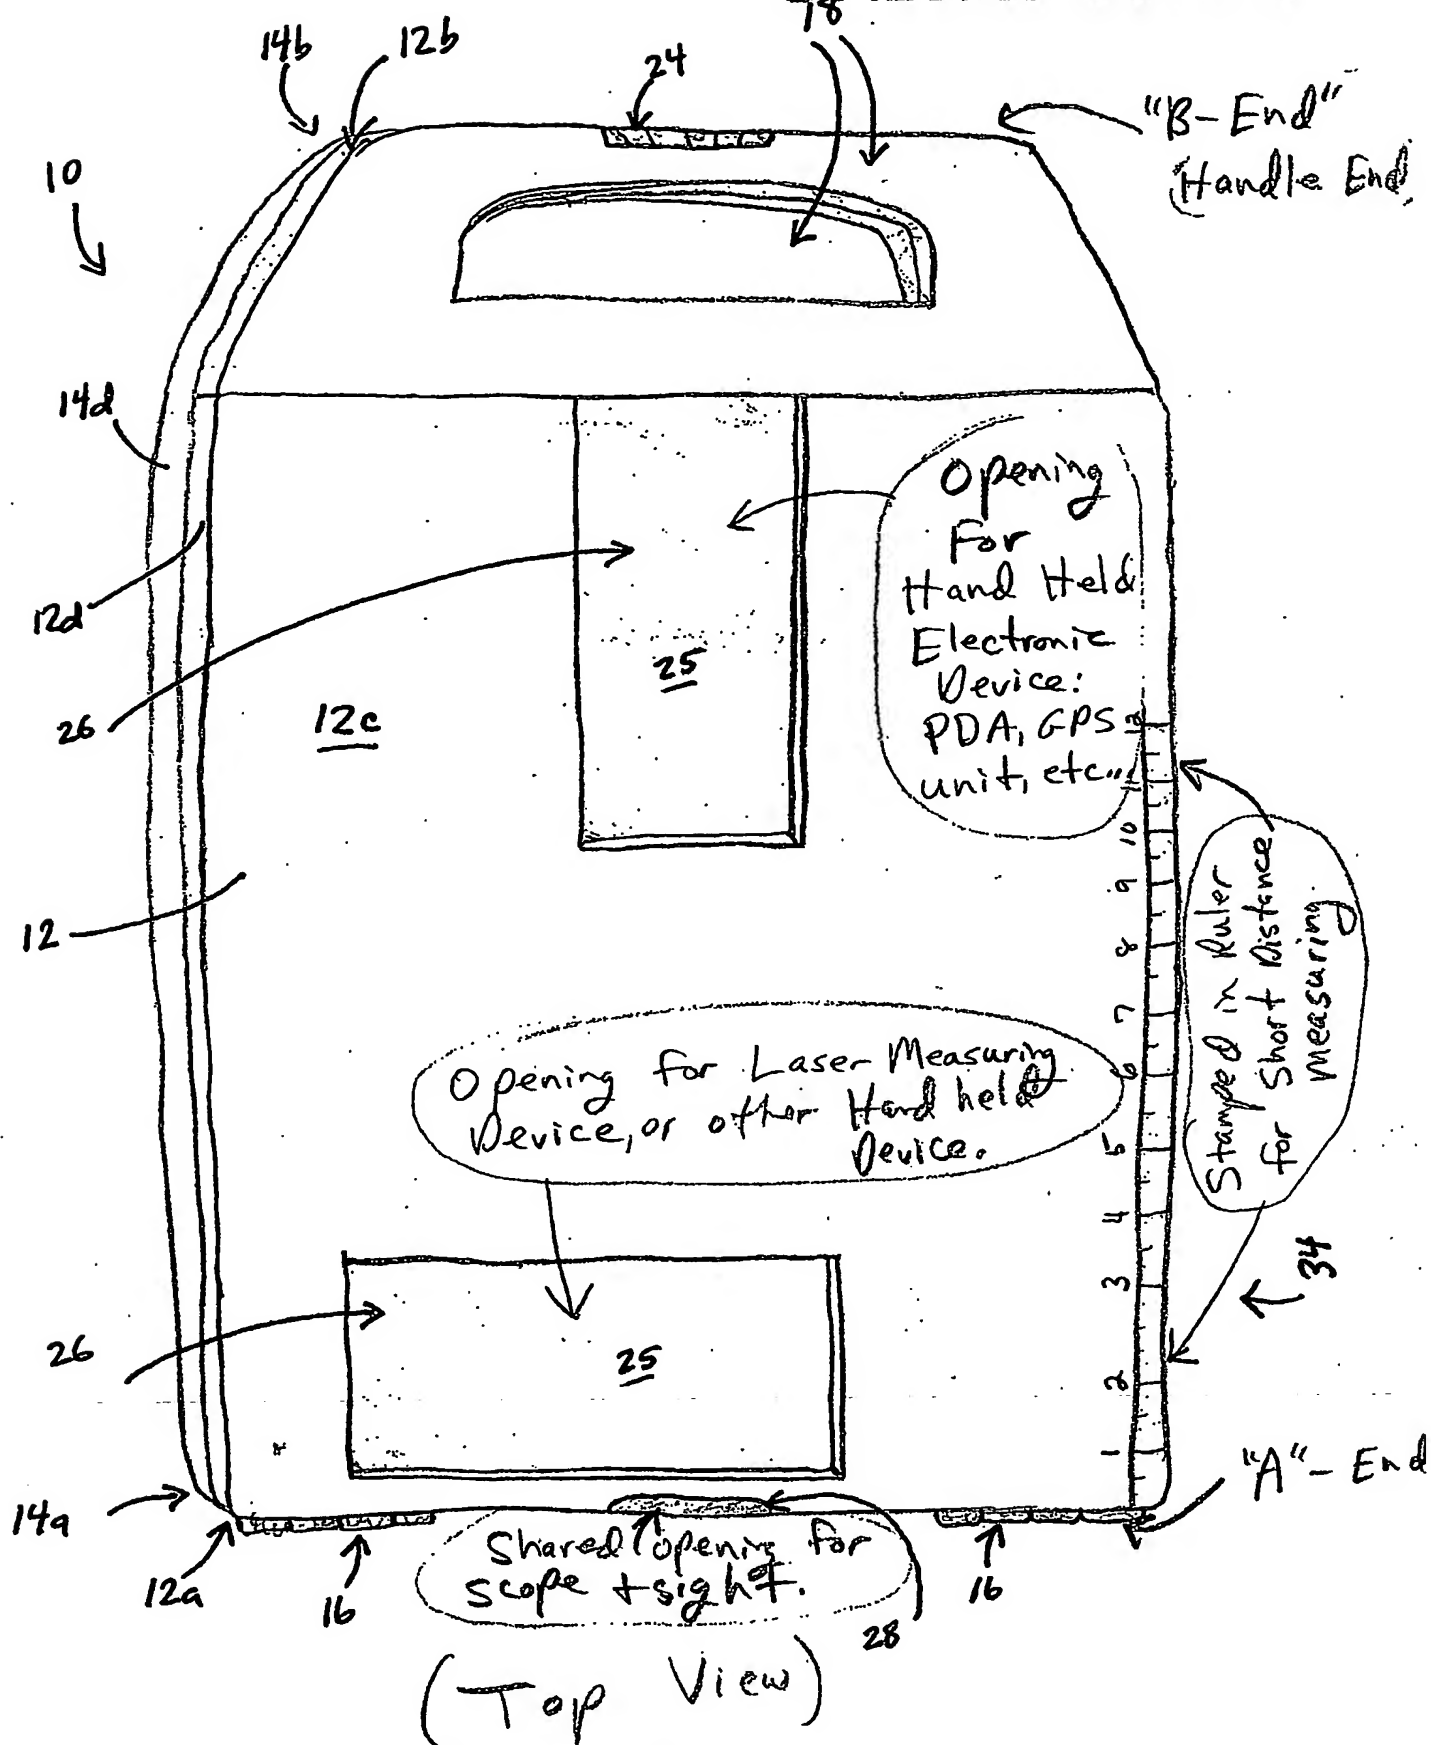 18
14b
12b
24
"B-End"
(Handle End
10
14d
Opening
For
Hand Held
Electronic
Device:
PDA, GPS
unit, etc...
12d
25
26
12c
12
11
10
9
8
7
6
5
4
3
2
1
12
Stamped in Ruler
for Short Distance
measuring.
Opening for Laser Measuring
Device, or other Hand held
Device.
34
26
25
"A"- End
14a
12a
16
Shared opening for
scope + sight.
16
28
(Top View)